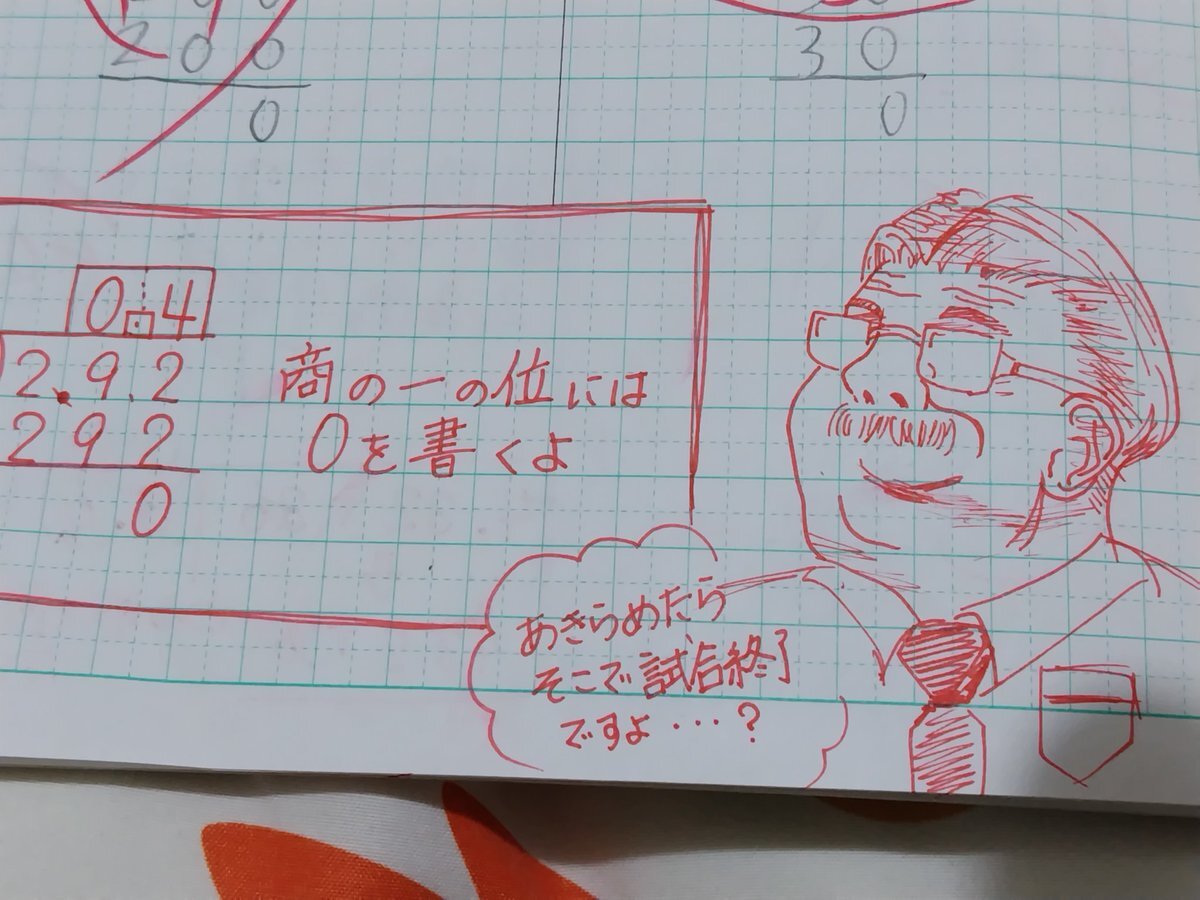 200
0
30
0
0.4
2.9.2
292
0
商の一の位には
0を書くよ
あきらめたら
そこで試合終了
ですよ・・・?